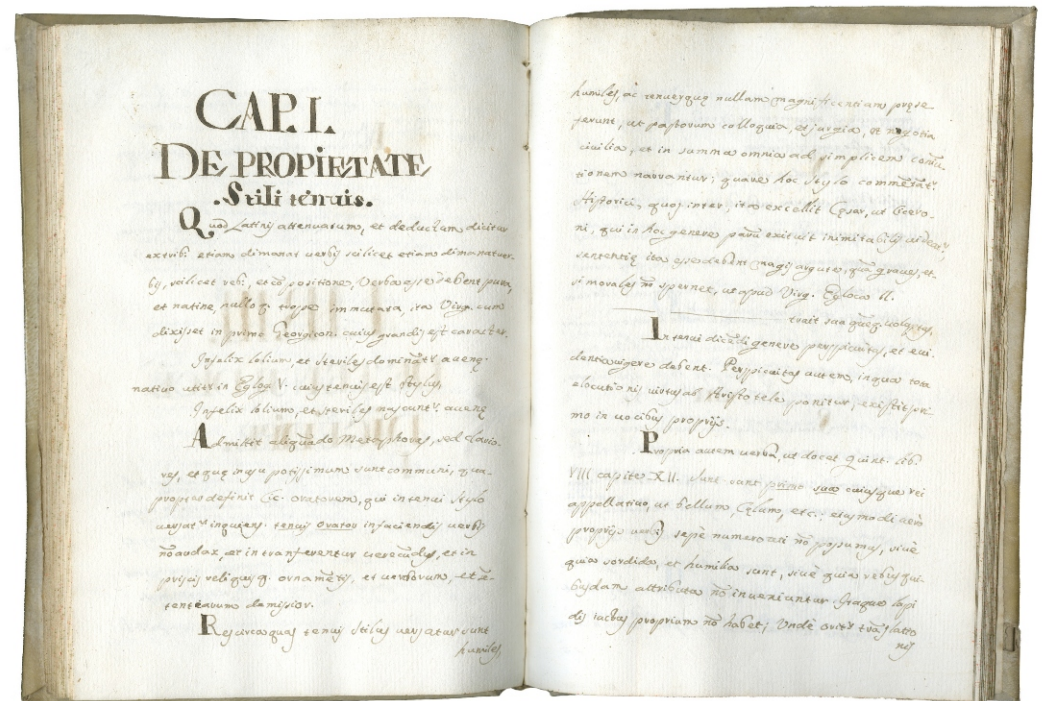 CAP. I.
DE PROPIETATE
.Stili tenuis.
Quod Latinis attenuatum, et deductum dicitur
etiam dimanat verbis scilicet etiam dimanat ver-
bis, scilicet rebus, et positione. Verba esse debent pura,
et nativa, nullo immutata, ita Virg. cum
dixisset in primo Georgicon. cuius grandis est caracter.
Infelix lolium, et steriles dominant avenę.
nativo utitur in Eglog. V. cuius tenuis est stylus,
Infelix lolium, et steriles nascunt avenę
Admittit aliquādo Metaphoras, sed clario-
res, et quę in usu potissimum sunt communi, qua-
propter definit Cic. oratorem, qui in tenui stylo
versat inquiens. tenuis orator in faciendis verbis
nō audax, et in transferentur verecūdus, et in
priscis reliquisq. ornamētis, et verborum, et sē-
tentiarum demisior.
Res circa quas tenuis stilus versatur sunt
humiles,
humiles, ac tenues, quę nullam magnificentiam pręse
ferunt, ut pastorum colloquia, et jurgia, et negotia
civilia, et in summa omnia ad simplicem
tionem narrantur; quare hoc stylo
Historici, quos inter, ita excellit Cęsar, ut Cicero-
ni, qui in hoc genere parū exituit inimitabilis
sententię ita esse debent magis argute, quā graves, et
si morales nō spernet, ut apud Virg. Egloca II.
trait sua quęq. voluptas.
In tenui dicēdi genere perspicuitas, et evi
dentia vigere debent. Perspicuitas autem, in qua tota
elocutionis virtus ab Aristotele ponitur, existit pri
mo in vocibus proprijs.
Propria autem verba, ut docet Quint. lib.
VIII capite XII. sunt sunt primo sua cuiusque rei
appellatio, ut bellum Cęlum, etc.; eiusmodi vero
proprijs sepè numero uti nō possumus, sivè
quia sordida, et humilia sunt, sivè quia rebus qui-
busdam attributa nō inveniantur Itaque lapi
dis iactus propriam nō habet; Undè
nis